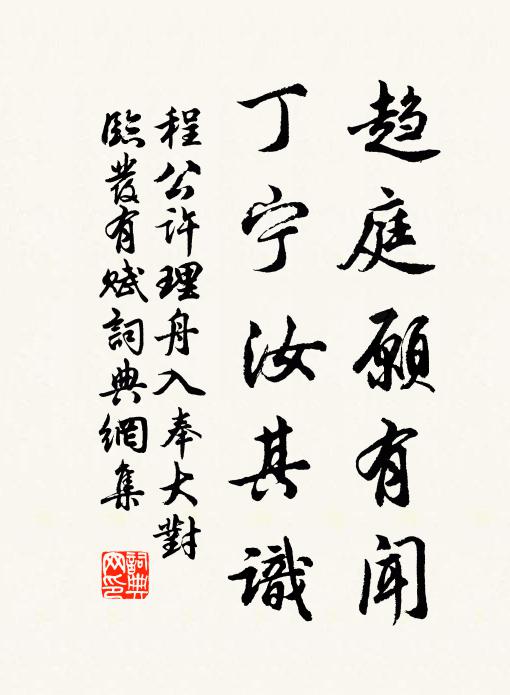 趋庭願有闻
丁宁汝其識
程公许理舟入奉大對
臨發有赋詞典網集
詞典
网印